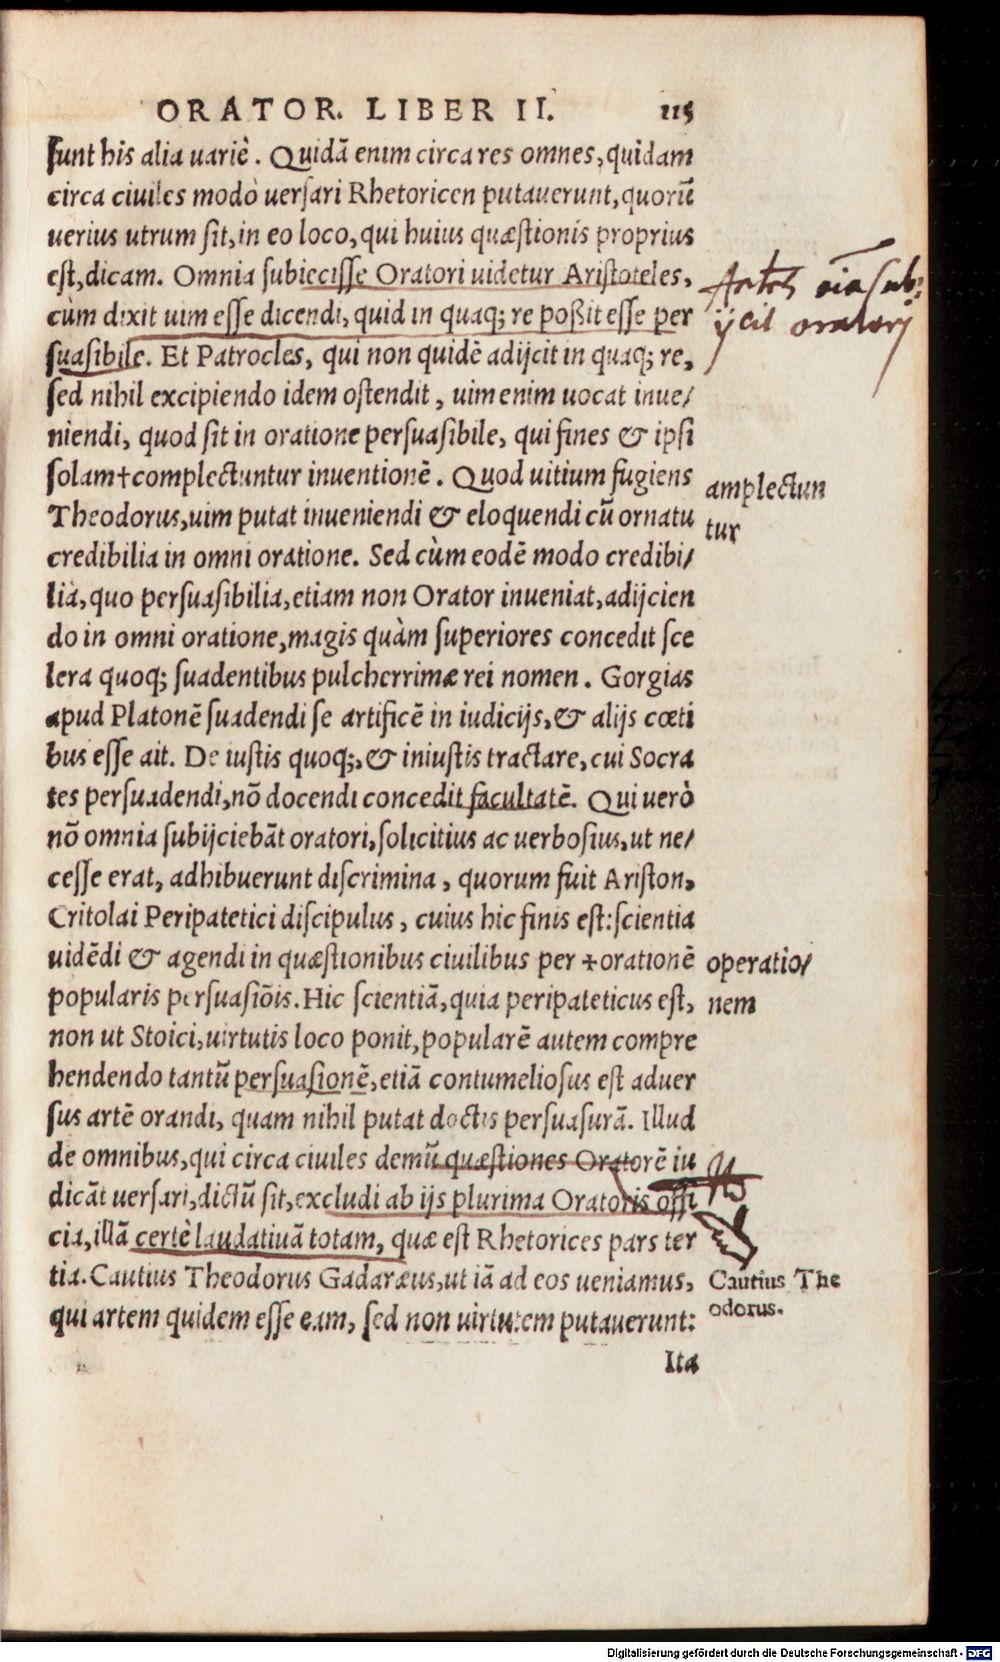 ORATOR. LIBER II. 115
sunt his alia uariè. Quidā enim circa res omnes, quidam
circa ciuiles modò uersari Rhetoricen putauerunt, quorū
uerius utrum sit, in eo loco, qui huius quæstionis proprius
est, dicam. Omnia subiecisse Oratori uidetur Aristoteles,
cùm dixit uim esse dicendi, quid in quaq; re poßit esse per
suasibile. Et Patrocles, qui non quidē adijcit in quaq; re,
sed nihil excipiendo idem ostendit, uim enim uocat inue/
niendi, quod sit in oratione persuasibile, qui fines & ipsi
solam†complectuntur inuentionē. Quod uitium fugiens
Theodorus, uim putat inueniendi & eloquendi cū ornatu
credibilia in omni oratione. Sed cùm eodē modo credibi/
lia, quo persuasibilia, etiam non Orator inueniat, adijcien
do in omni oratione, magis quàm superiores concedit sce
lera quoq; suadentibus pulcherrimæ rei nomen. Gorgias
apud Platonē suadendi se artificē in iudicijs, & alijs cœti
bus esse ait. De iustis quoq;, & iniustis tractare, cui Socra
tes persuadendi, nō docendi concedit facultatē. Qui uerò
nō omnia subijciebāt oratori, solicitius ac uerbosius, ut ne/
cesse erat, adhibuerunt discrimina, quorum fuit Ariston,
Critolai Peripatetici discipulus, cuius hic finis est: scientia
uidēdi & agendi in quæstionibus ciuilibus per †orationē
popularis persuasiōis. Hic scientiā, quia peripateticus est,
non ut Stoici, uirtutis loco ponit, popularē autem compre
hendendo tantū persuasionē, etiā contumeliosus est aduer
sus artē orandi, quam nihil putat doctis persuasurā. Illud
de omnibus, qui circa ciuiles demū quæstiones Oratorē iu
dicāt uersari, dictū sit, excludi ab ijs plurima Oratoris offi
cia, illā certè laudatiuā totam, quæ est Rhetorices pars ter
tia. Cautius Theodorus Gadaræus, ut iā ad eos ueniamus,
qui artem quidem esse eam, sed non uirtutem putauerunt:
Ita
oīa sub:
ijcit oratorj
amplectun
tur
operatio/
nem
Cautius The
odorus.
Digitalisierung gefördert durch die Deutsche Forschungsgemeinschaft - DFG